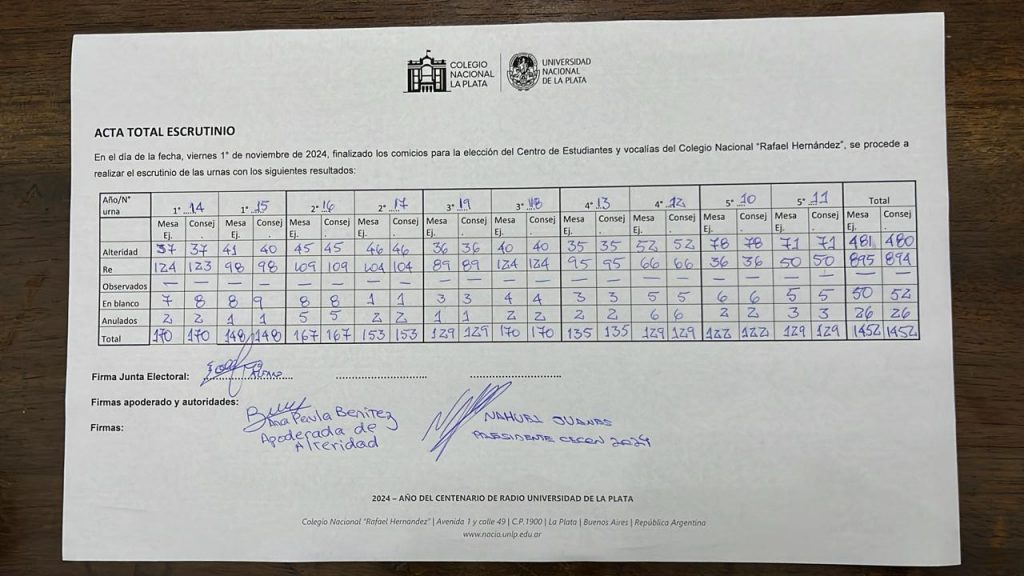 COLEGIO
NACIONAL
LA PLATA
UNIVERSIDAD
NACIONAL
DE LA PLATA
ACTA TOTAL ESCRUTINIO
En el día de la fecha, viernes 1° de noviembre de 2024, finalizado los comicios para la elección del Centro de Estudiantes y vocalías del Colegio Nacional "Rafael Hernández", se procede a
realizar el escrutinio de las urnas con los siguientes resultados:
Año/N° urna 1° 14 1° 15 2° 16 2° 17 3° 19 3° 18 4° 13 4° 12 5° 10 5° 11 Total
Mesa Ej. Consej. Mesa Ej. Consej. Mesa Ej. Consej. Mesa Ej. Consej. Mesa Ej. Consej. Mesa Ej. Consej. Mesa Ej. Consej. Mesa Ej. Consej. Mesa Ej. Consej. Mesa Ej. Consej. Mesa Ej. Consej.
Alteridad 37 37 41 40 45 45 46 46 36 36 40 40 35 35 52 52 78 78 71 71 481 480
Re 124 123 98 98 109 109 104 104 89 89 124 124 95 95 66 66 36 36 50 50 895 894
Observados — — — — — — — — — — — — — — — — — — — — — —
En blanco 7 8 8 9 8 8 1 1 3 3 4 4 3 3 5 5 6 6 5 5 50 52
Anulados 2 2 1 1 5 5 2 2 1 1 2 2 2 2 6 6 2 2 3 3 26 26
Total 170 170 148 148 167 167 153 153 129 129 170 170 135 135 129 129 122 122 129 129 1452 1452
Firma Junta Electoral:
Firmas apoderado y autoridades:
Firmas:
Ana Paula Benitez
Apoderada de
Alteridad
NAHUEL JUANES
PRESIDENTE CECON 2024
2024 – AÑO DEL CENTENARIO DE RADIO UNIVERSIDAD DE LA PLATA
Colegio Nacional "Rafael Hernandez" | Avenida 1 y calle 49 | C.P.1900 | La Plata | Buenos Aires | República Argentina
www.nacio.unlp.edu.ar